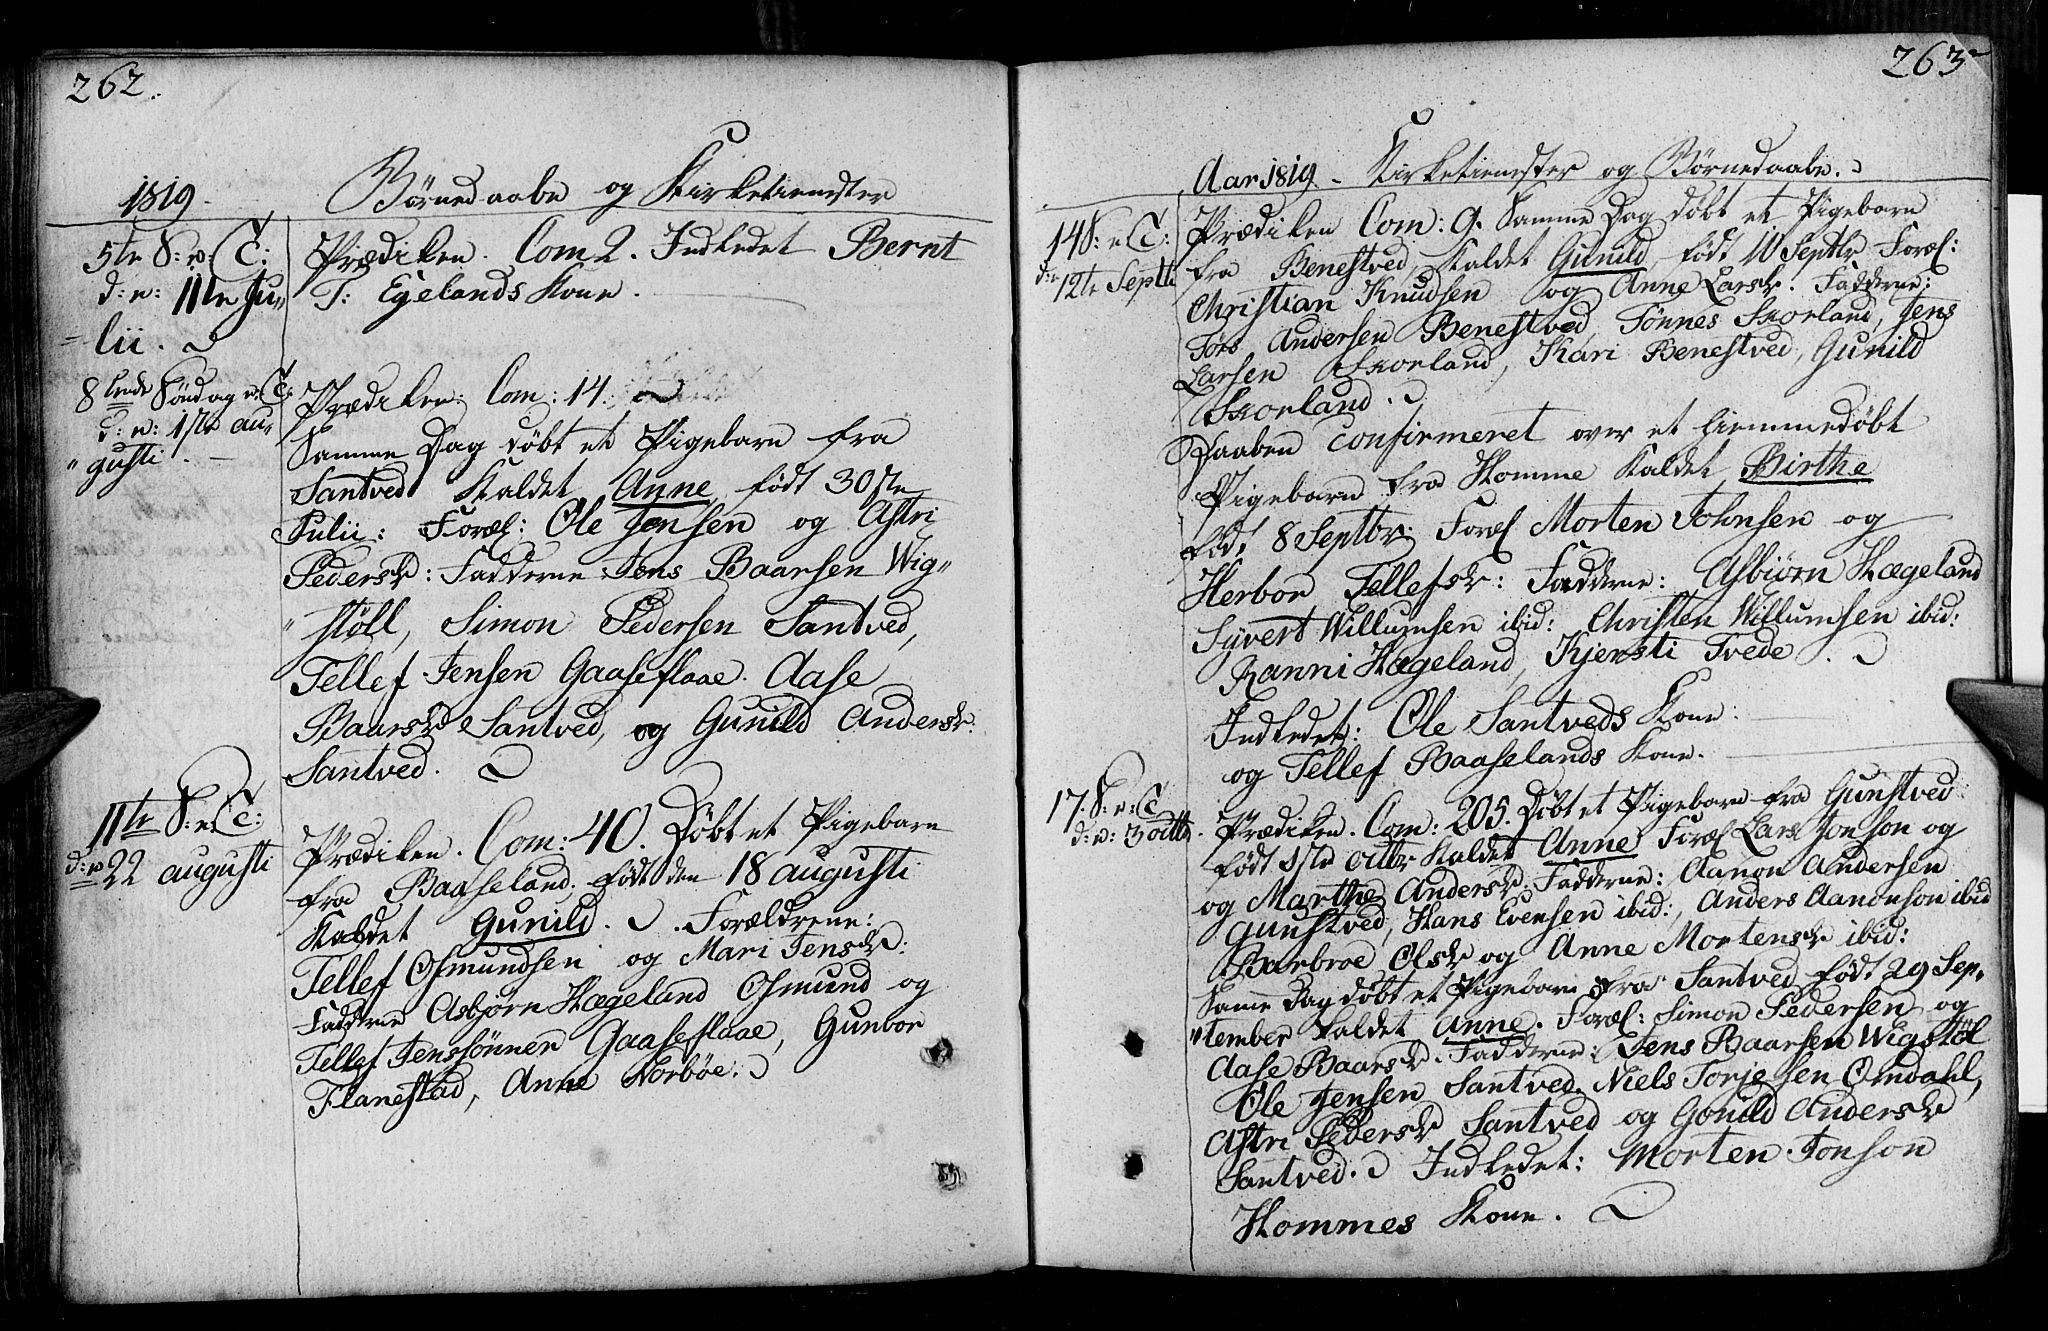 262.
1819.
Börnedaabe og Kirketienester
5te S: e: T:
d: e: 11te Ju-
lii.
Prædiken. Com 2. Indledet Bernt
T: Egelands Kone.
8tende Söndag e: T:
d: e: 1ste au-
gusti.
Prædiken: Com: 14.
Samme Dag döbt et Pigebarn fra
Santved Kaldet Anne, födt 30ste
Julii: Foræl: Ole Jensen og Astri
Pedersdr: Fadderne: Jens Baarsen Wig-
stöll, Simon Pedersen Santved,
Tellef Jensen Gaaseflaae. Aase
Baarsdr Santved, og Gunild Andersdr.
Santved.
11te S. e: T:
d: e 22 augusti
Prædiken. Com: 40. Döbt et Pigebarn
fra Baaseland, födt den 18 augusti
Kaldet Gunild. Forældrene:
Tellef Osmundsen og Mari Jensdr:
Fadderne Asbjörn Hægeland Osmund og
Tellef Jenssönner Gaaseflaae, Gunbor
Flanestad, Anne Norböe.
263
Aar 1819. Kirketienester og Börnedaabe.
14 S: e T:
d: e 12te Septb
Prædiken Com: 9. Samme Dag döbt et Pigebarn
fra Benestved, Kaldet Gunild, födt 10 Septbr Foræl:
Christian Knudsen og Anne Larsdr. Fadderne:
Tors Andersen Benestved, Tönnes Skorland, Jens
Larsen Skorland, Kari Benestved, Gunild
Skorland.
Daaben confirmeret over et hiemmedöbt
Pigebarn fra Homme Kaldet Birthe
födt 8 Septbr: Foræl Morten Johnsen og
Herbor Tellefsdr: Fadderne: Asbiörn Hægeland
Syvert Willumsen ibid: Christen Willumsen ibid:
Ranni Hægeland, Kjersti Tvede.
Indledet: Ole Santveds Kone:
og Tellef Baaselands Kone.
17. S: e: T
d: e: 3 octbr.
Prædiken. Com: 205. Döbt et Pigebarn fra Gunstved
födt 1ste octbr Kaldet Anne Foræl Lars Jonson og
og Marthe Andersdr. Fadderne: Aanon Andersen
Gunstved, Hans Evensen ibid:, Anders Aanonson ibid
Barbroe Olsdr og Anne Mortensdr ibid:
Same Dag döbt et Pigebarn fra Santved födt 29 Sep-
tember Kaldet Anne. Foræl: Simon Pedersen og
Aase Baarsdr. Fadderne: Jens Baarsen Wigstöl
Ole Jensen Santved, Niels Torjesen Omdahl,
Astri Pedersdr Santved og Gonild Andersdr
Santved. Indledet: Morten Jonson
Hommes Kone.